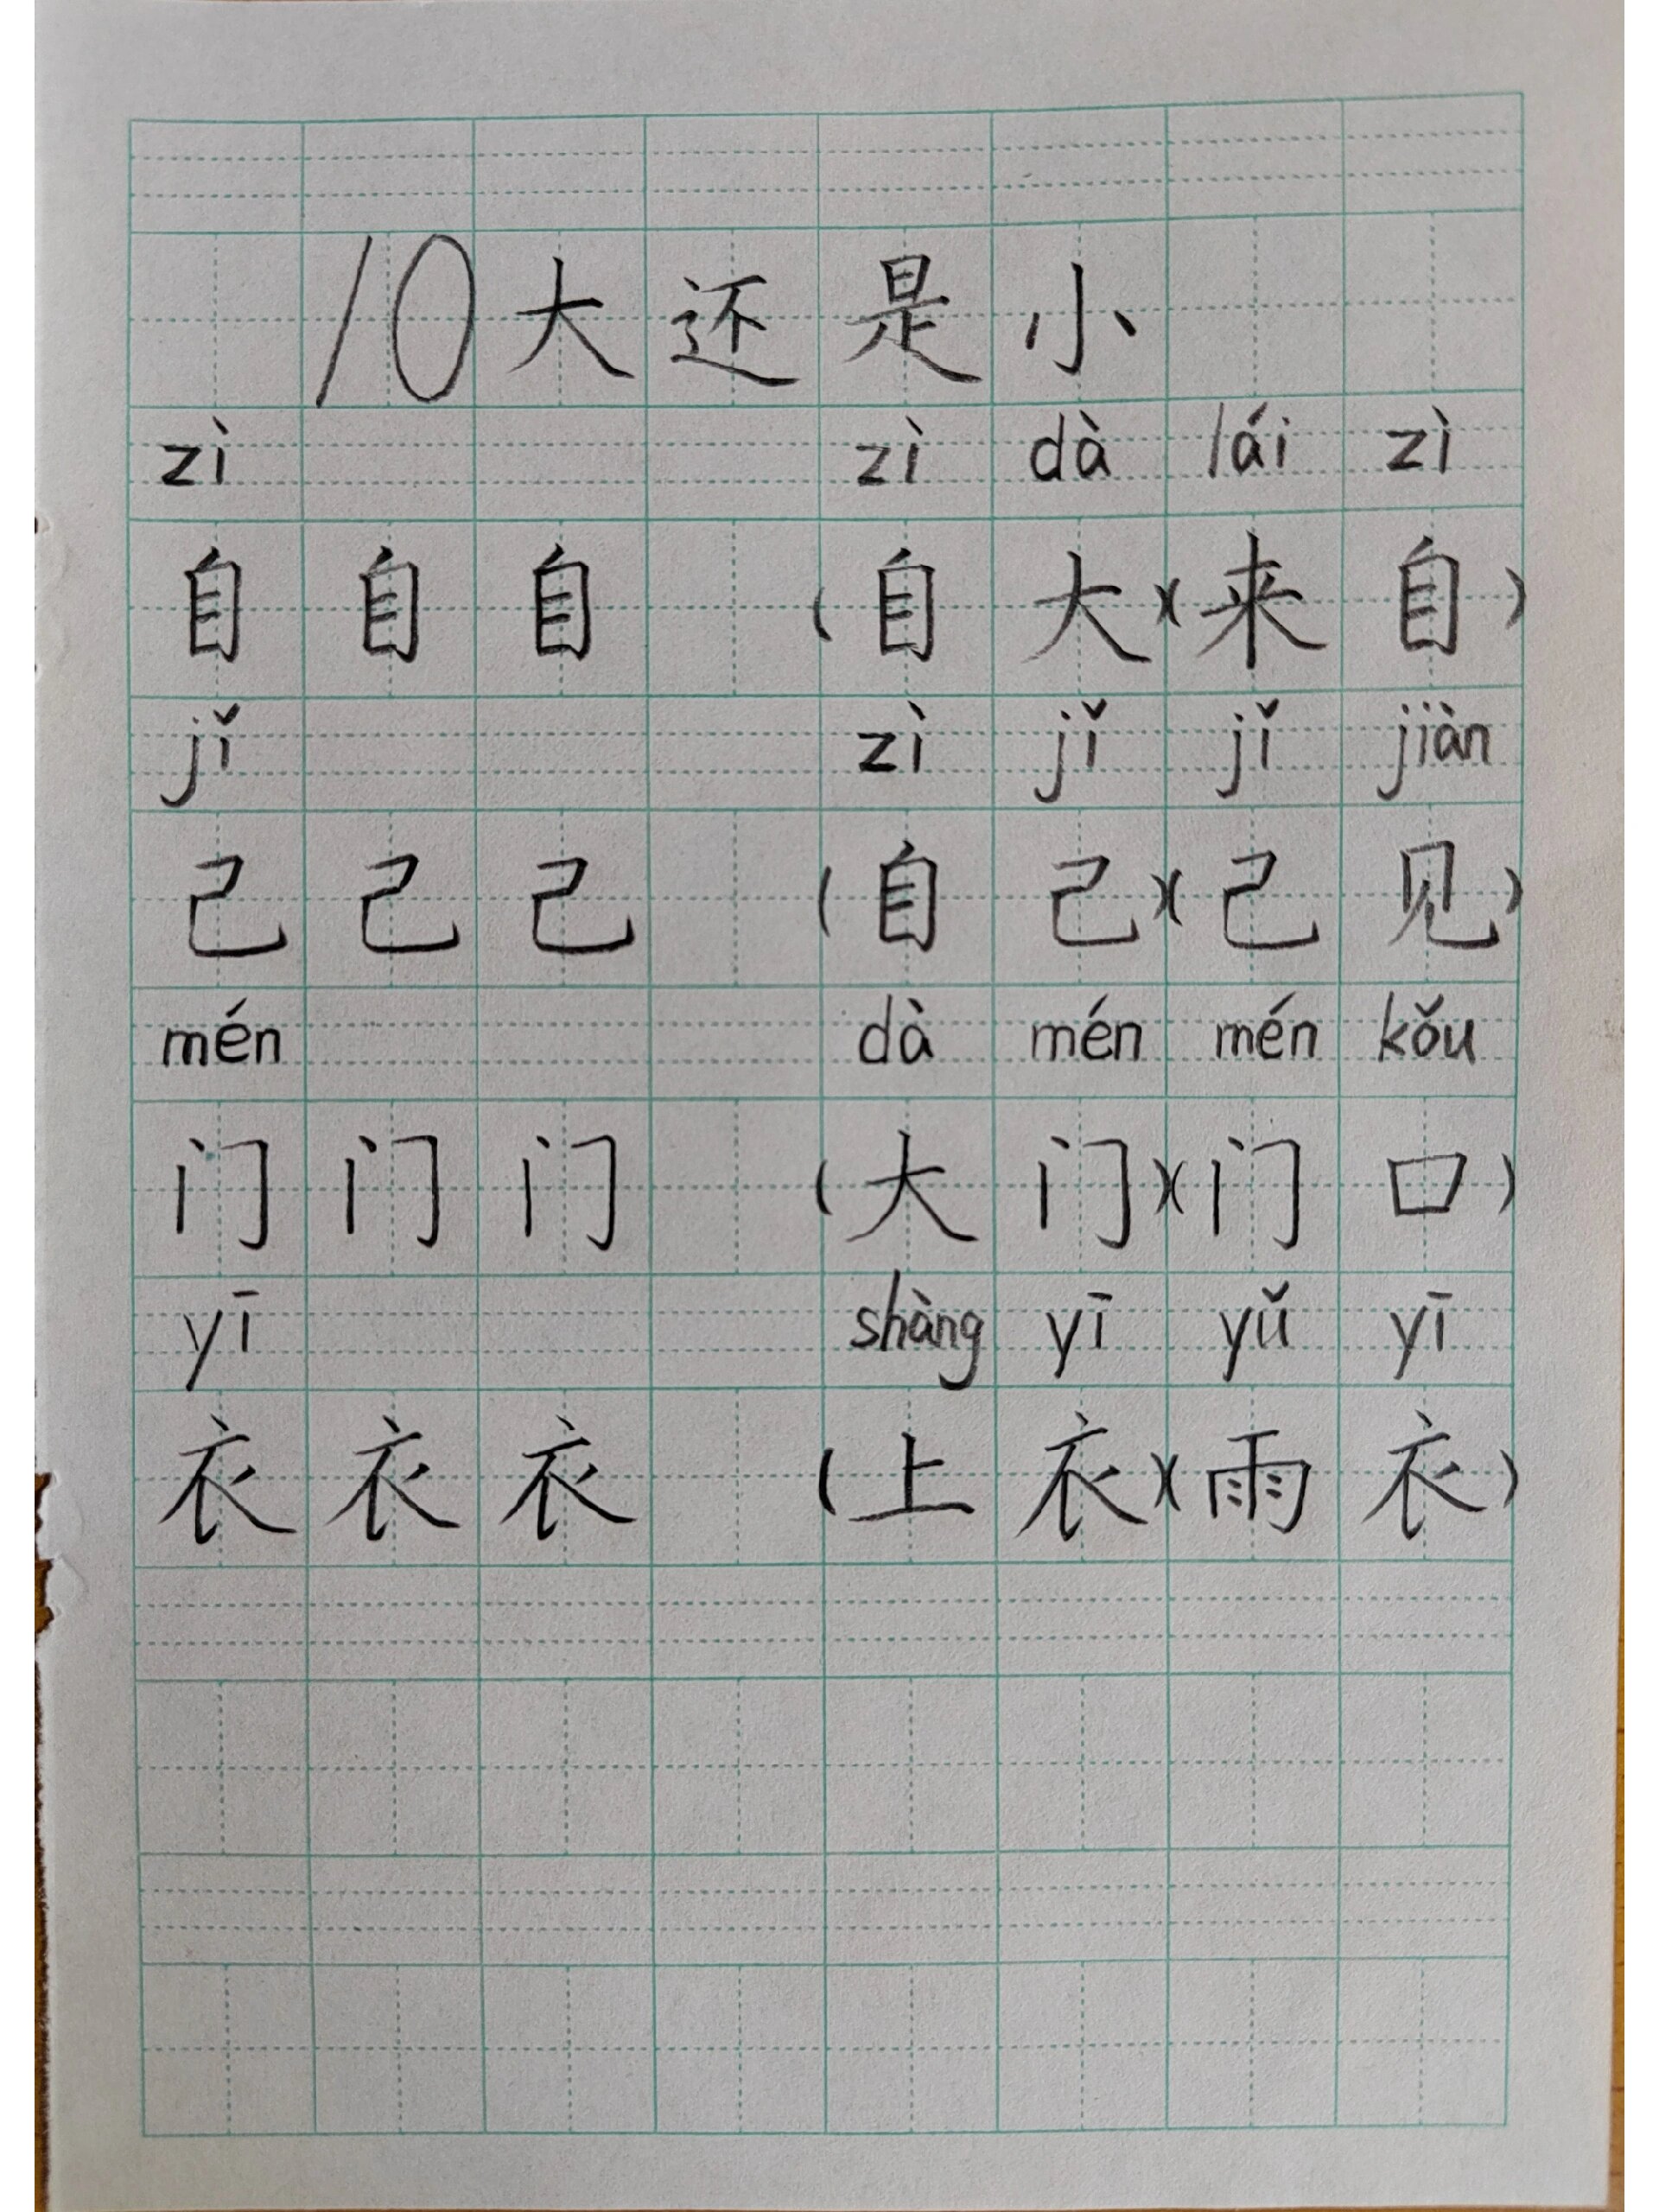 10大还是小
zì zì dà lái zì
自 自 自 (自 大)(来 自)
jǐ zì jǐ jǐ jiàn
己 己 己 (自 己)(己 见)
mén dà mén mén kǒu
门 门 门 (大 门)(门 口)
yī shàng yī yǔ yī
衣 衣 衣 (上 衣)(雨 衣)